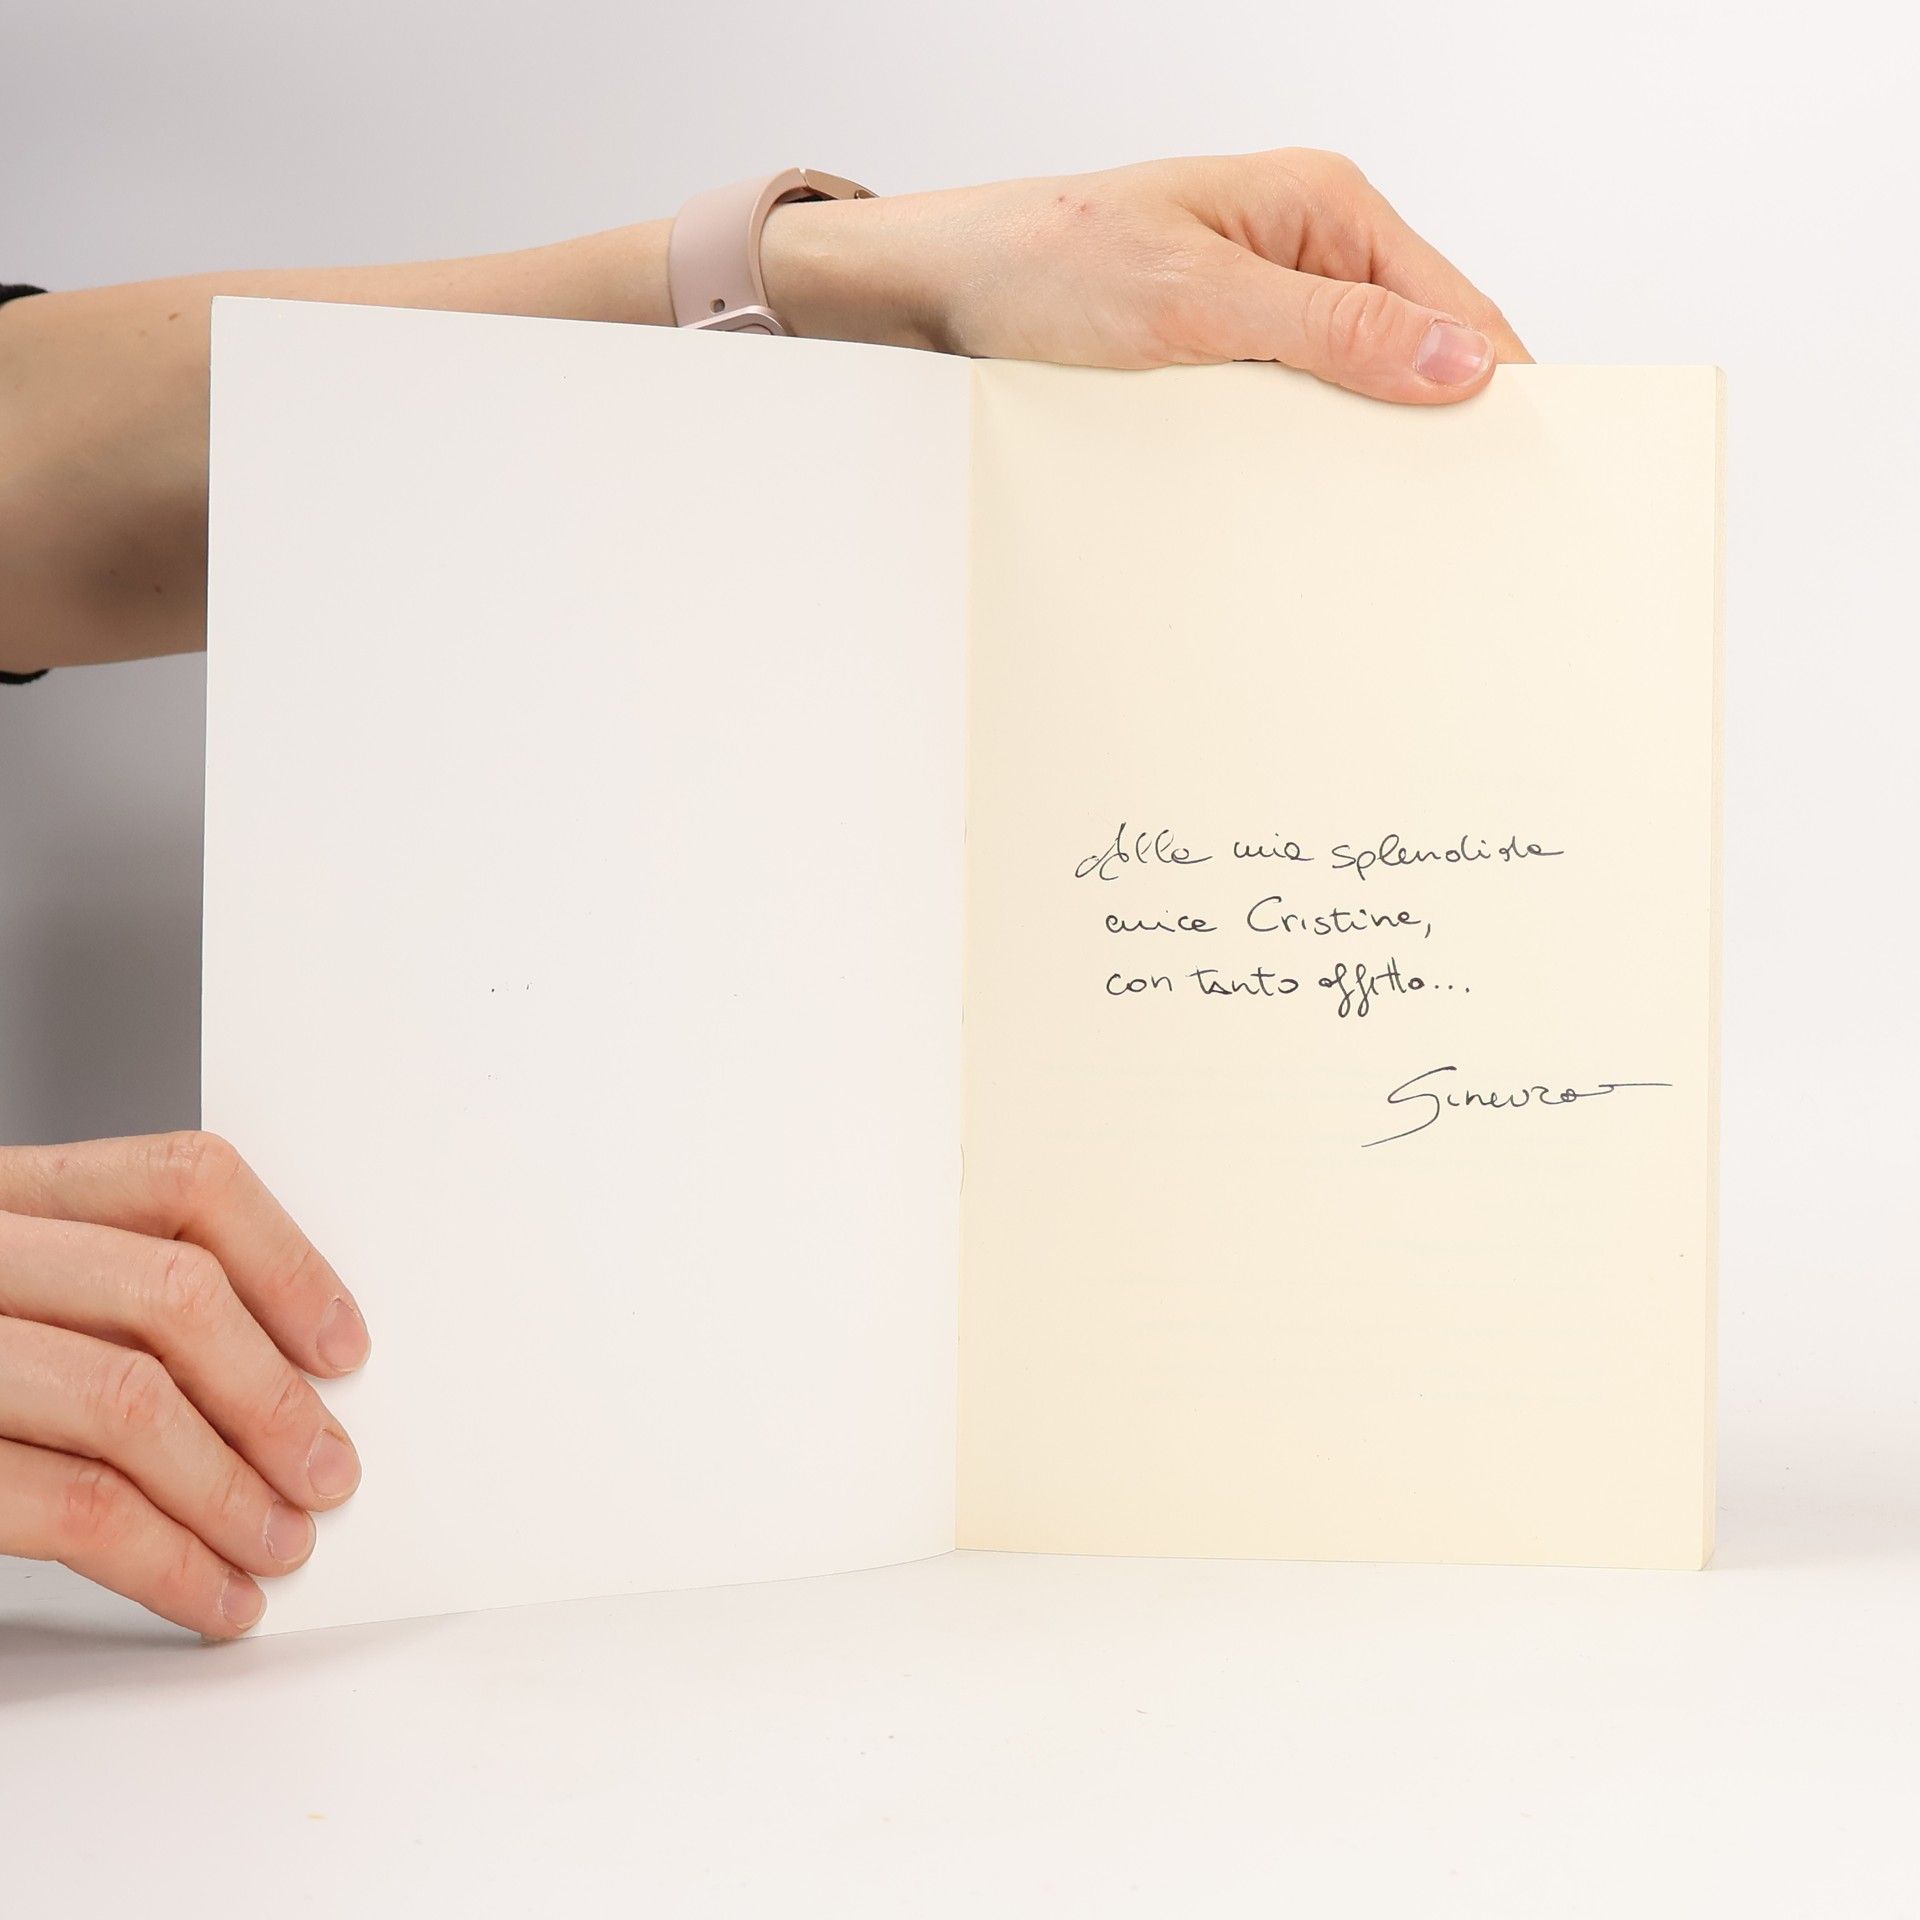 Alla mia splendida
amica Cristina,
con tanto affetto...
Ginevra